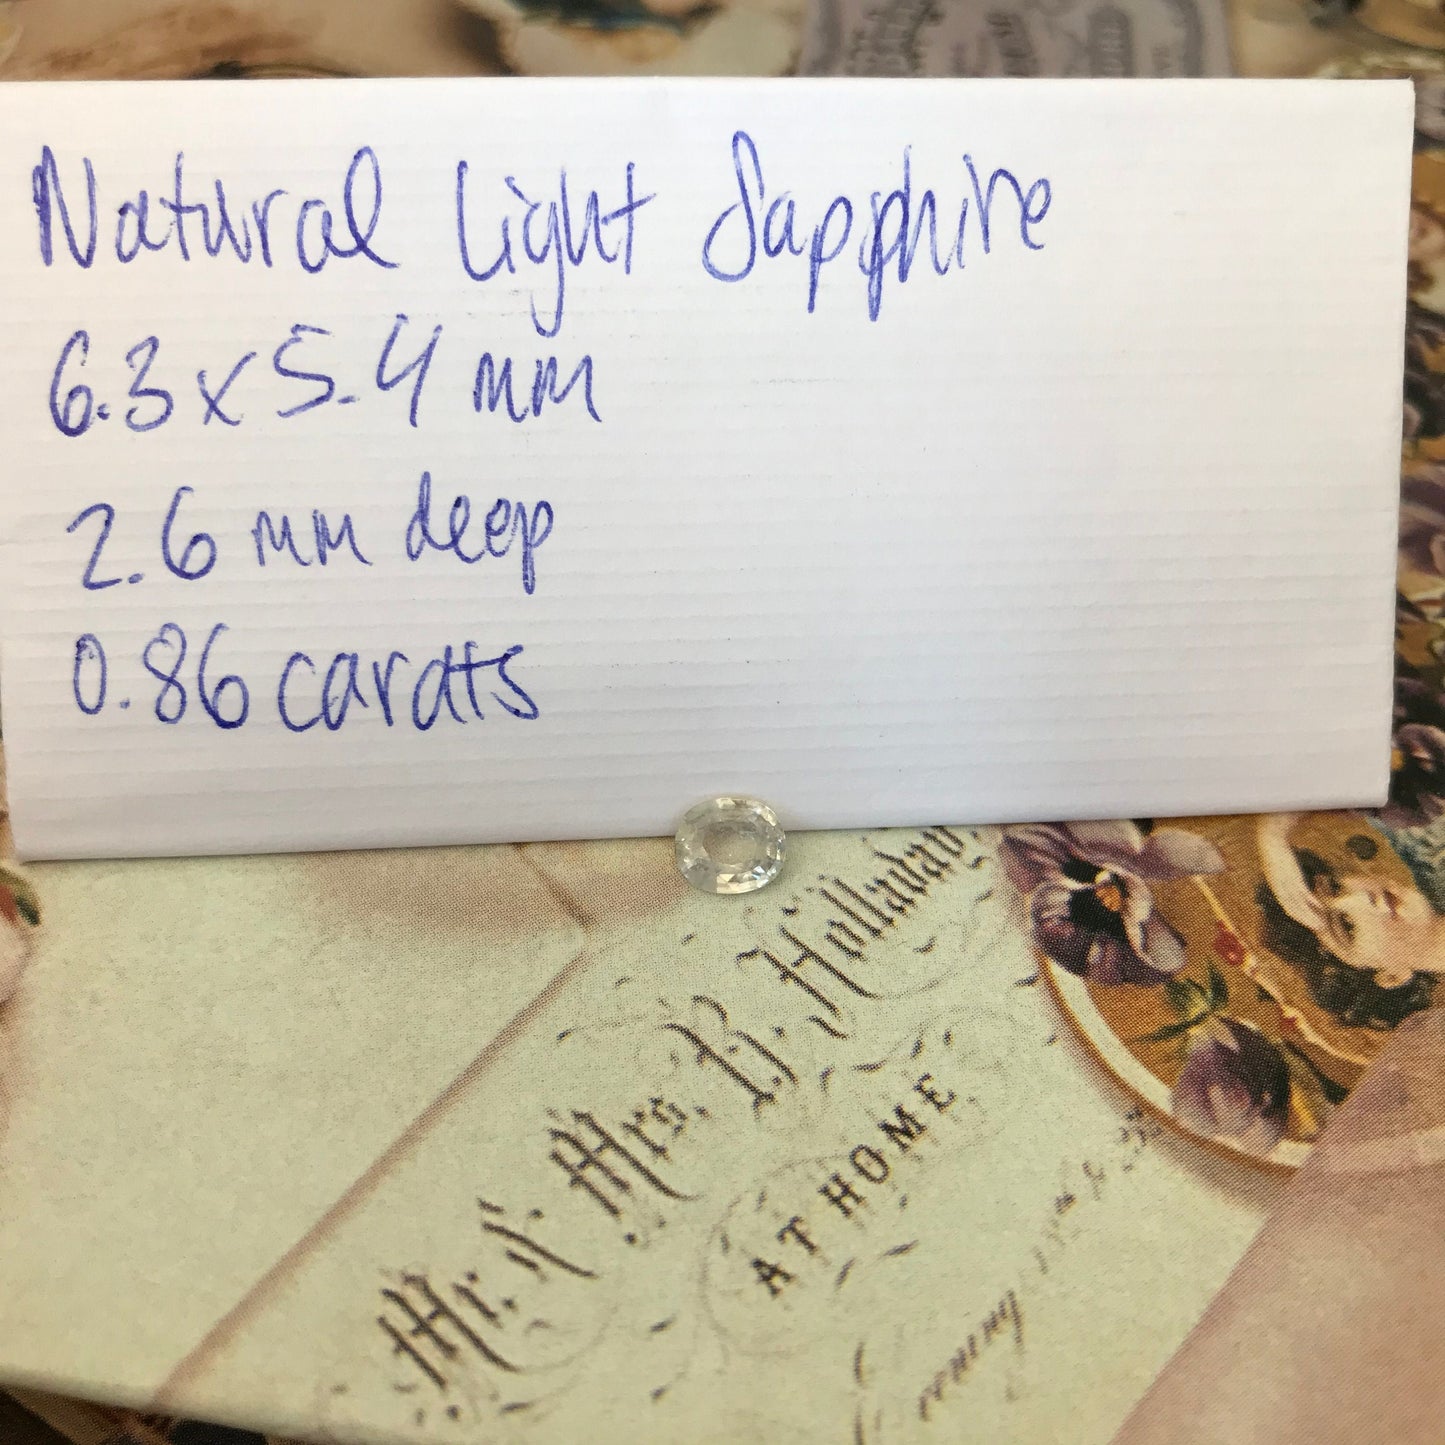 Natural Light Sapphire
6.3x5.4 mm
2.6 mm deep
0.86 carats
Mr. & Mrs. B. Holladay
AT HOME